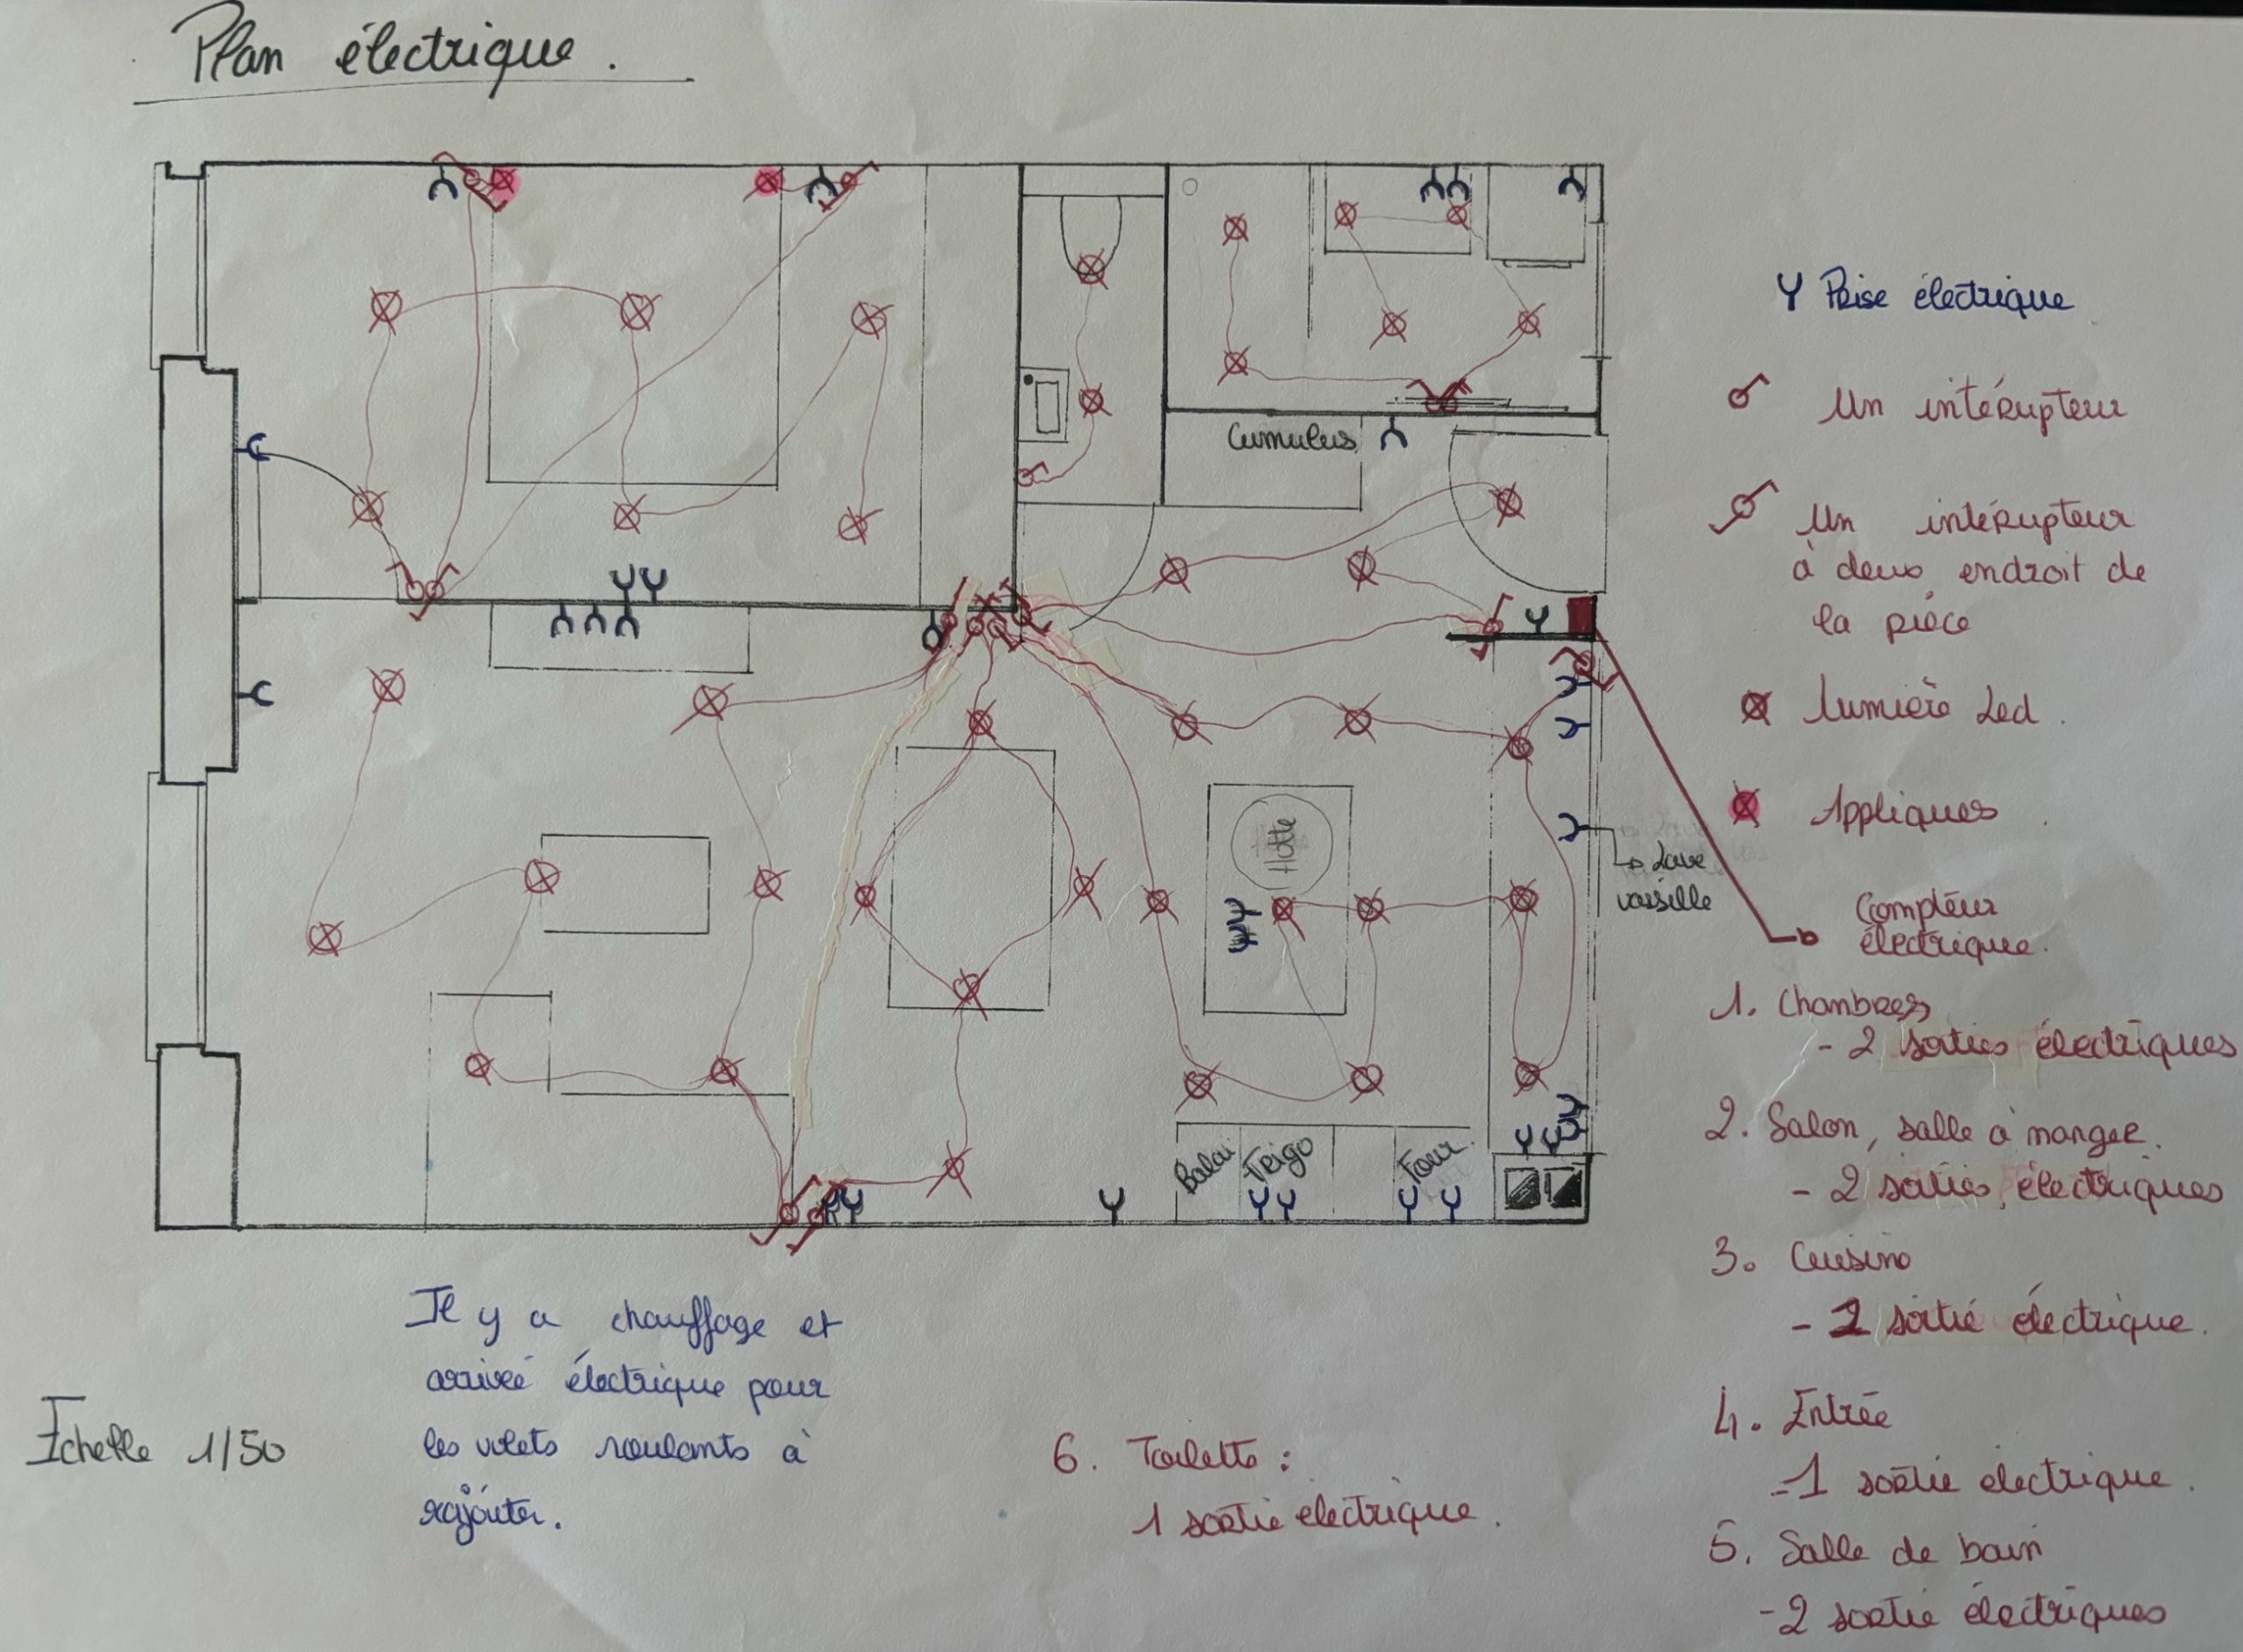 Plan électrique.
Cumulus
Hotte
Lave
vaisselle
Balai
Frigo
Four
Y Prise électrique
Un intérupteur
Un intérupteur
à deux endroit de
la pièce
lumière Led.
Appliques
Compteur
électrique.
1. Chambres
- 2 sorties électriques
2. Salon, salle à manger.
- 2 sorties électriques
3. Cuisine
- 2 sortie électrique.
4. Entrée
- 1 sortie electrique.
5. Salle de bain
- 2 sortie électriques
Il y a chauffage et
arrivée électrique pour
les volets roulants à
rajouter.
Echelle 1/50
6. Toilette :
1 sortie electrique.